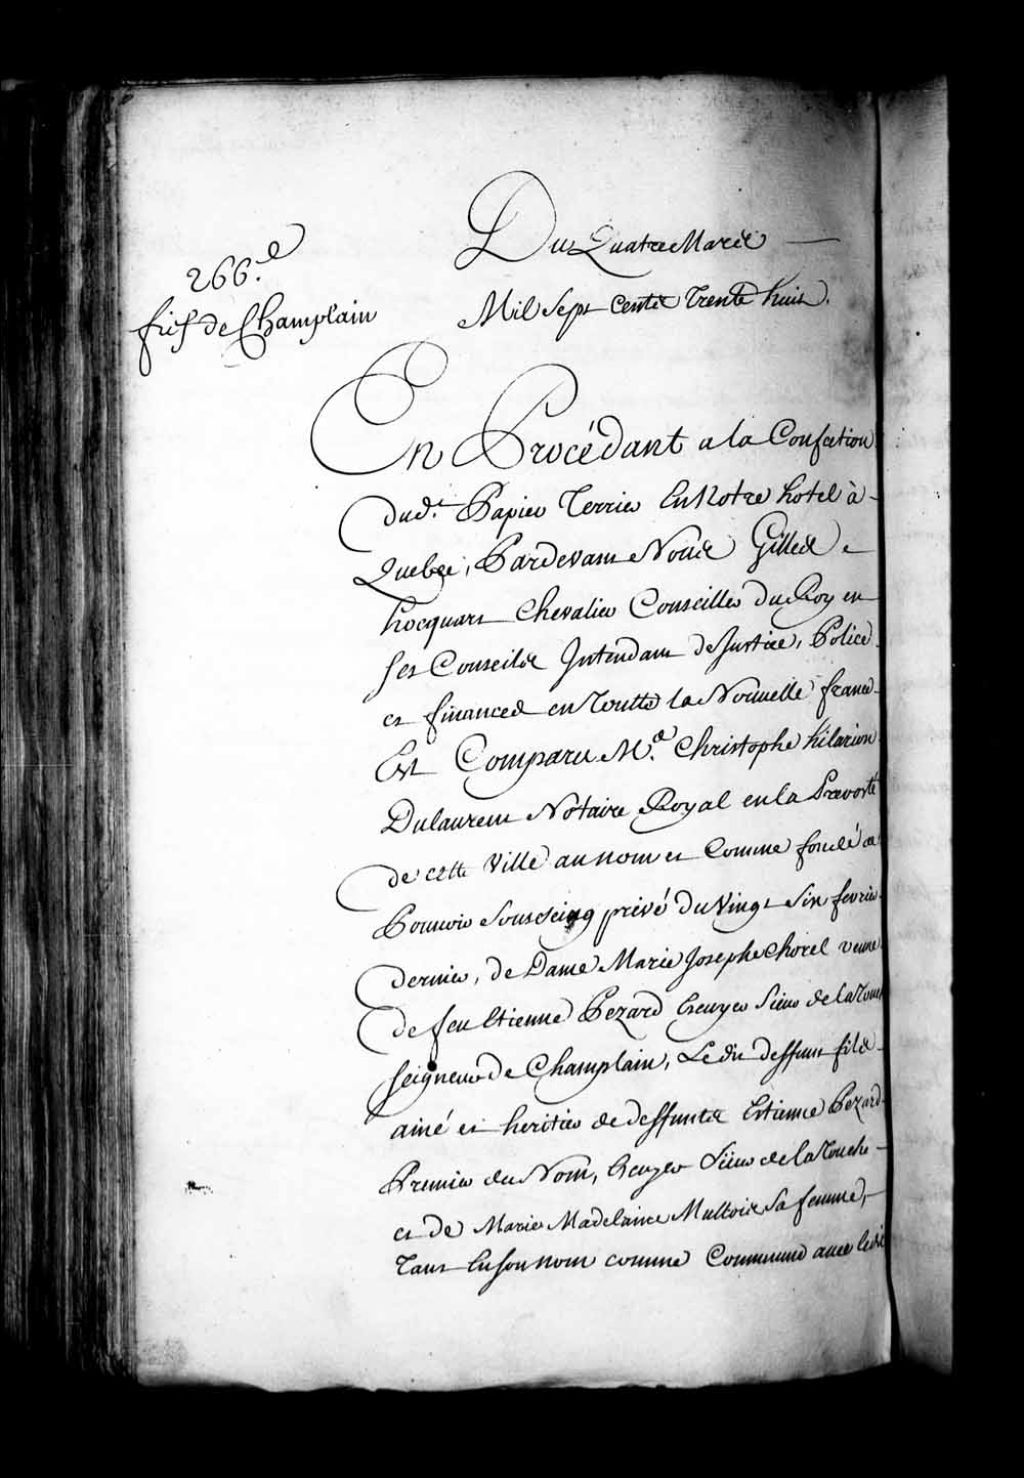 266.e
fief de Champlain
Du Quatre Mars
Mil Sept Cents Trente huit.
En Procédant a la Confection
dud.t Papier Terrier en Notre hotel à
Quebec, Pardevant Nous Gilles
hocquart Chevalier Conseiller du Roy en
ses Conseils Intendant de Justice, Police
et finances en Toutte la Nouvelle france
Est Comparu M.e Christophe hilarion
Dulaurent Notaire Royal en la Prevosté
de cette Ville au nom et Comme fondé de
Pouvoir sous seing privé du Vingt Six fevrier
dernier, de Dame Marie Josephe Chorel veuve
de feu Etienne Pezard Ecuyer Sieur de la Touche
seigneur de Champlain, Le dit deffunt fils
ainé et heritier de deffunts Etienne Pezard
Premier du Nom, Ecuyer Sieur de la Touche
et de Marie Madelaine Mulloir Sa femme,
Tant en son nom comme Commune avec ledit